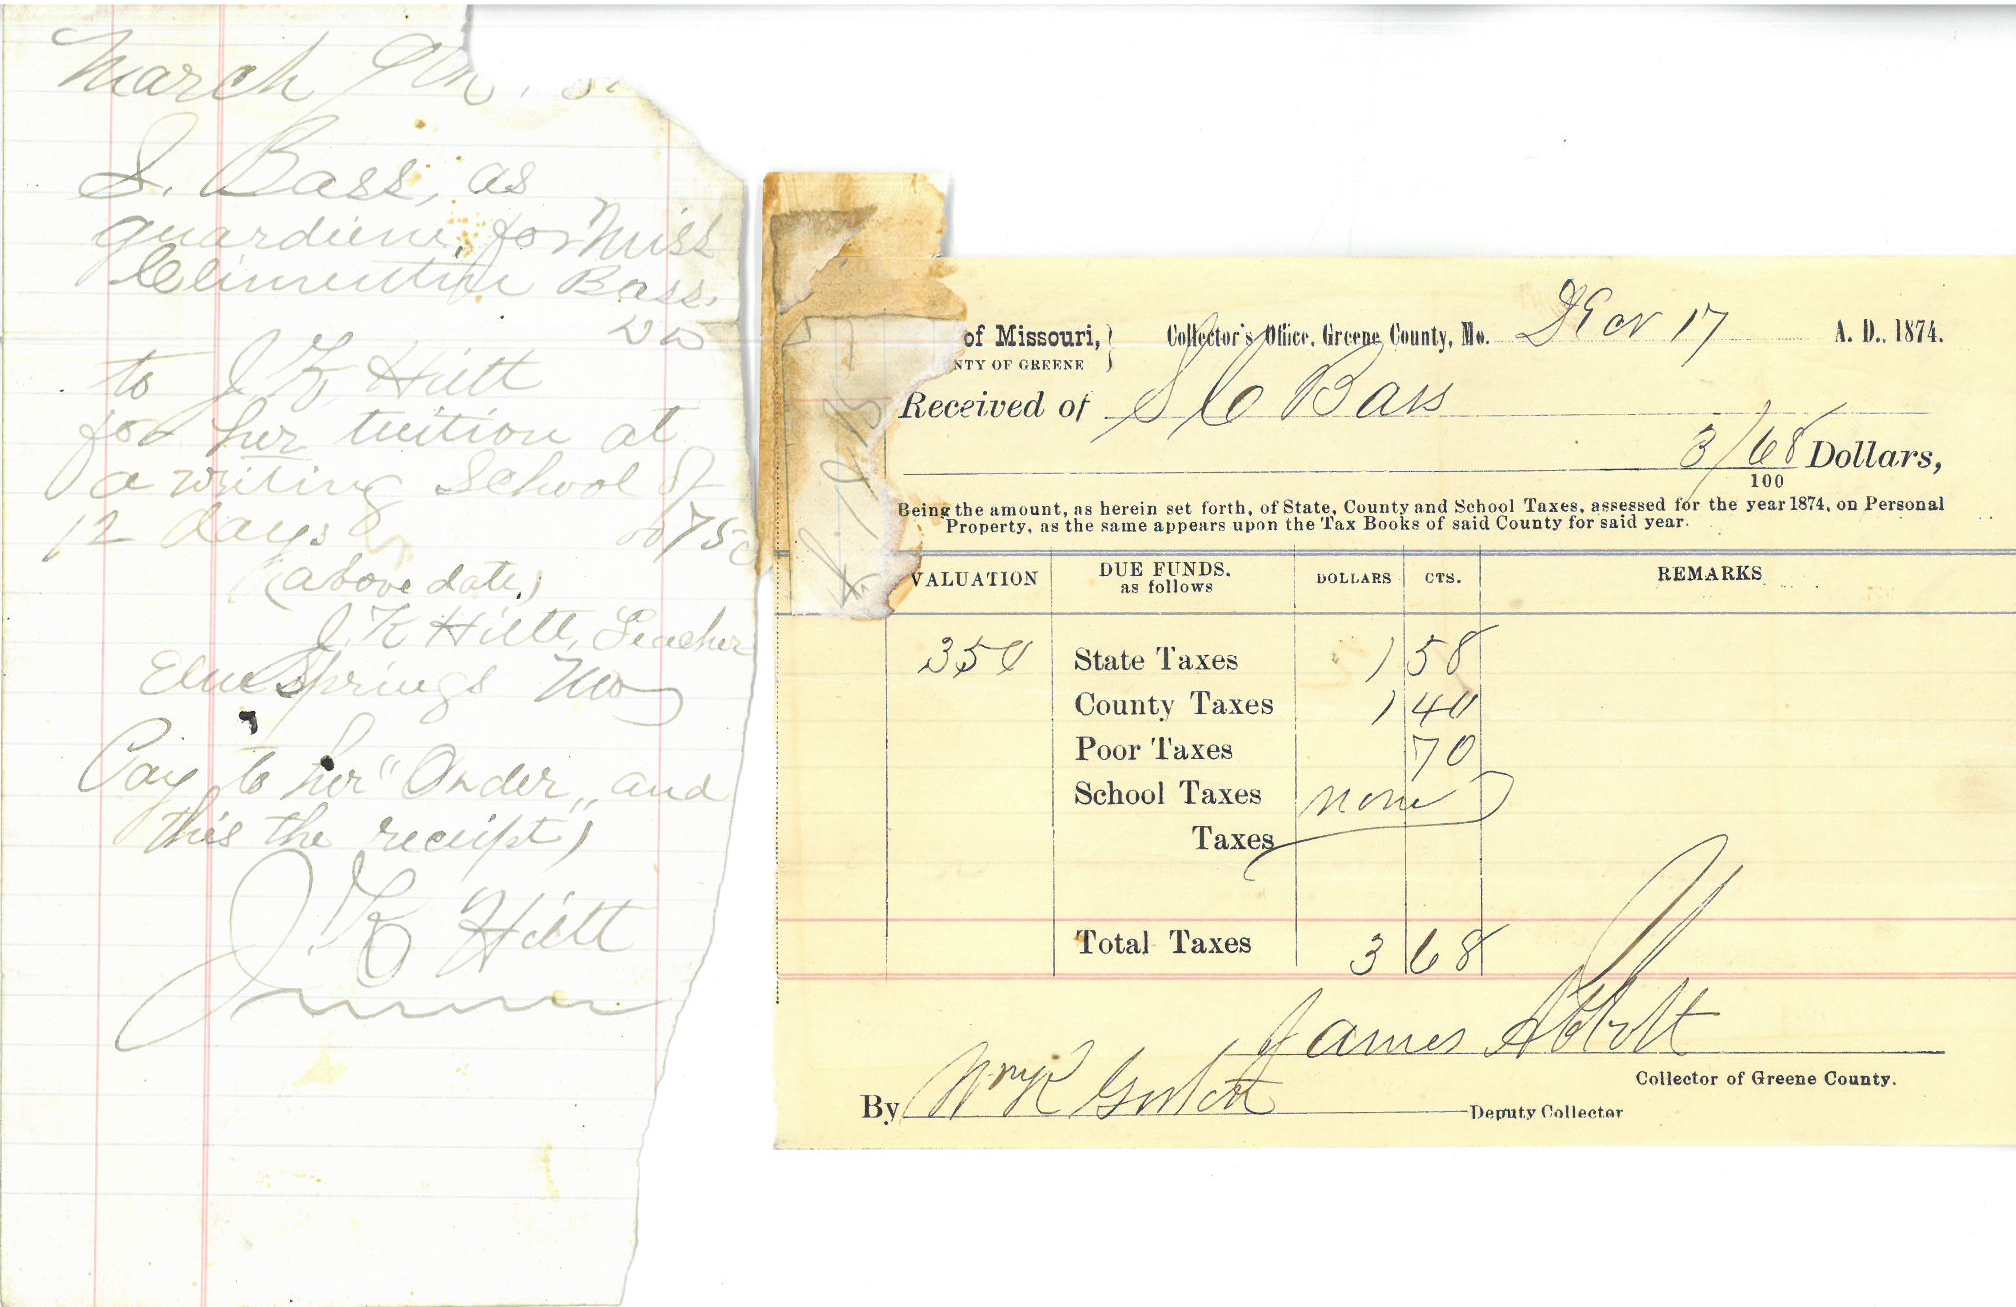 March 9th,
S. Bass, as
guardiene, for Miss
Climentine Bass,
Dr
to J. K. Hiett
for her tuition at
a writing School of
12 days 75c
(above date,)
J. K Hiett, Teacher
Elm Springs Mo
Pay to her "Order" and
this the receipt)
J. K Hiett
of Missouri,
NTY OF GREENE
Collector's Office, Greene County, Mo. Dec 17 A. D., 1874.
Received of S C Bass
3/68 Dollars,
100
Being the amount, as herein set forth, of State, County and School Taxes, assessed for the year 1874, on Personal
Property, as the same appears upon the Tax Books of said County for said year.
VALUATION DUE FUNDS, as follows DOLLARS CTS. REMARKS
350 State Taxes 1 58
County Taxes 1 40
Poor Taxes 70
School Taxes none
Taxes
Total Taxes 3 68
James Abbott
Collector of Greene County.
By Wm K Deputy Collector